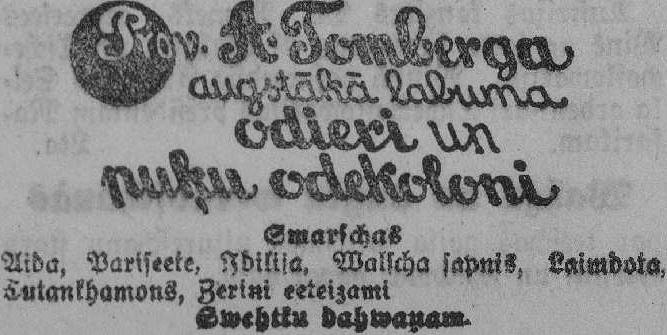 Prov. A. Tomberga
augstākā labuma
odieri un
puķu odekoloni
Smarſchas
Aida, Pariſeete, Idilija, Walſcha ſapnis, Laimdota,
Tutankhamons, Zerini eeteizami
Swehtku dahwaņam.